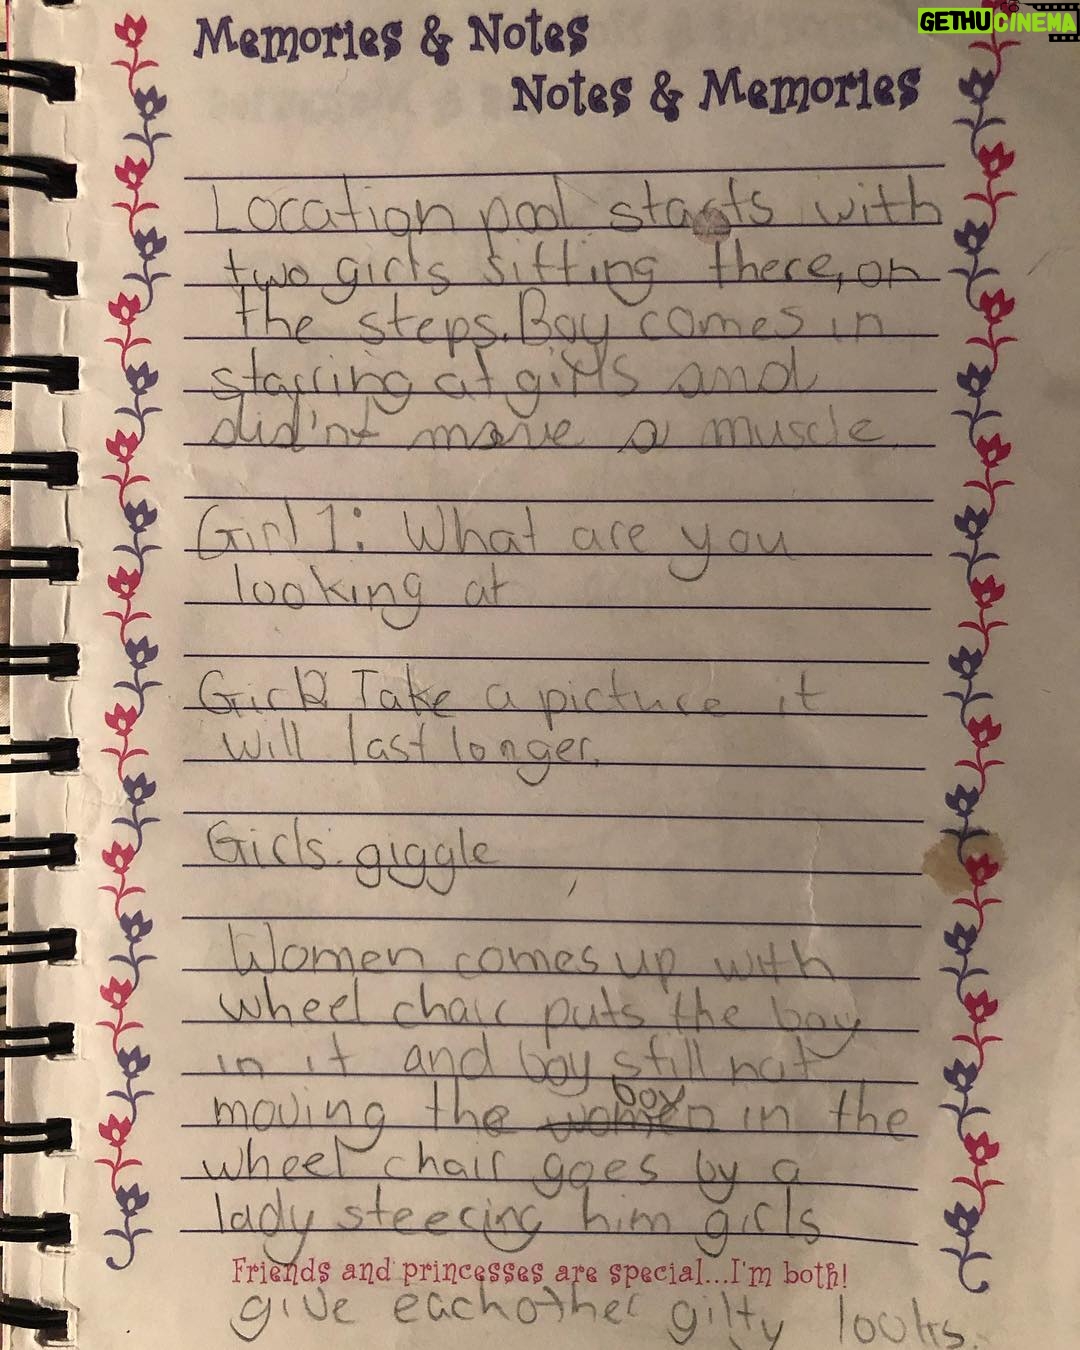 GETHUCINEMA
Memories & Notes
Notes & Memories
Location pool starts with
two girls sitting there, on
the steps. Boy comes in
starring at girls and
did'nt move a muscle.
Girl 1: What are you
looking at
Girl 2 Take a picture it
will last longer.
Girls: giggle
Women comes up with
wheel chair puts the boy
in it and boy still not
boy
moving the women in the
wheel chair goes by a
lady steering him girls
Friends and princesses are special...I'm both!
give eachother gilty looks.